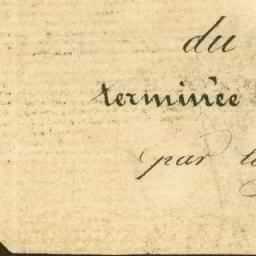 du
terminée
par